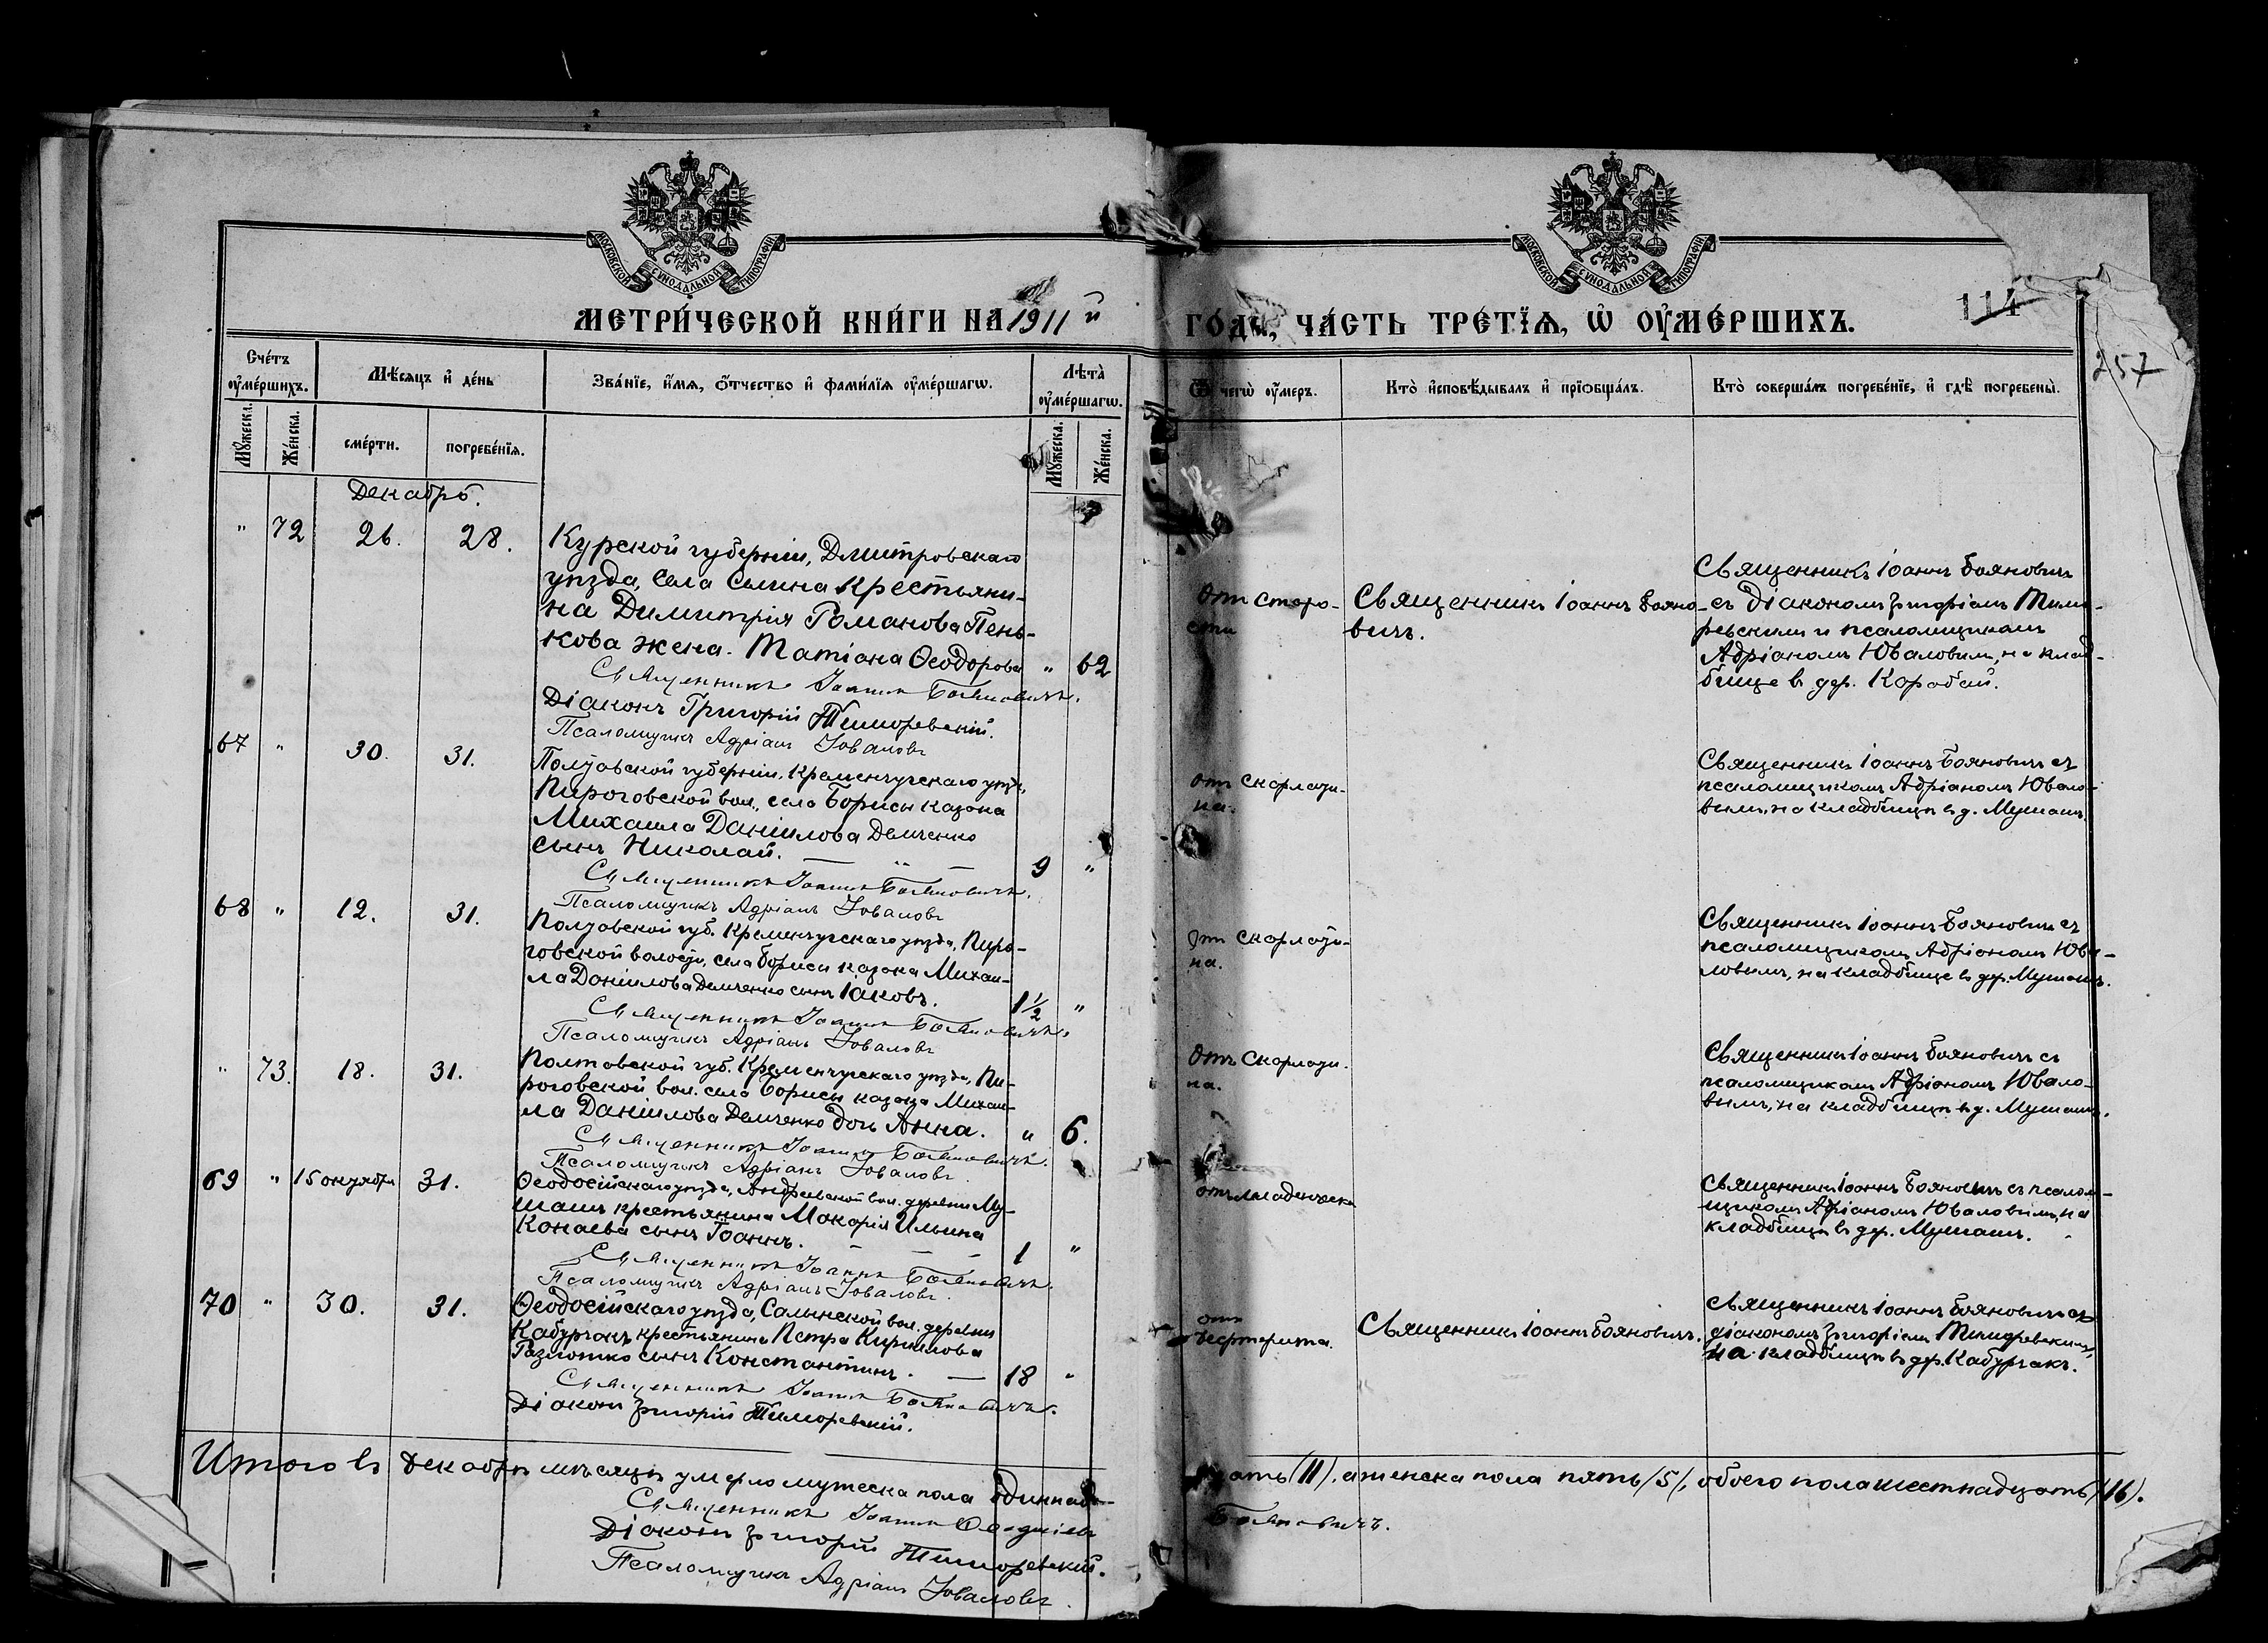 МОСКОВСКОЙ СѴНОДАЛЬНОЙ ТИПОГРАФІИ
МОСКОВСКОЙ СѴНОДАЛЬНОЙ ТИПОГРАФІИ
МЕТРИ́ЧЕСКОЙ КНИ́ГИ НА 1911 й ГО́ДЪ, ЧА́СТЬ ТРЕ́ТЇѦ, Ѡ ОУ҆МЕ́РШИХЪ.
114
257
Сче́тъ оу҆ме́ршихъ.
Мѣ́сѧцъ и҆ де́нь
Зва́нїе, и҆́мѧ, ѻ҆́тчество и҆ фами́лїѧ оу҆ме́ршагѡ.
Лѣта̀ оу҆ме́ршагѡ.
Ѿ чегѡ̀ оу҆́меръ.
Кто̀ и҆сповѣ́дывалъ и҆ прїѻбща́лъ.
Кто̀ соверша́лъ погребе́нїе, и҆ гдѣ̀ погребены̀.
Мꙋ́жеска.
Же́нска.
сме́рти.
погребе́нїѧ.
Мꙋ́жеска.
Же́нска.
Декабрь.
" 72 26. 28.
Курской губерніи, Дмитровскаго
уѣзда, села Селина крестьяни-
на Димитрія Романова Пень-
кова жена. Татіана Ѳеодорова " 62
Священникъ Іоаннъ Бояновичъ.
Діаконъ Григорій Тиморевскій.
Псаломщикъ Адріанъ Юваловъ
От старо-
сти
Священникъ Іоаннъ Бояно-
вичъ.
Священникъ Іоаннъ Бояновичъ
съ діакономъ Григоріемъ Тимо-
ревскимъ и псаломщикомъ
Адріаномъ Юваловым, на клад-
бище в дер. Карабай.
67 " 30. 31.
Полтавской губерніи, Кременчугскаго уѣзда,
Пироговской вол., села Борисы казака
Михаила Даніилова Демченко
сынъ Николай. 9 "
Священникъ Іоаннъ Бояновичъ.
Псаломщикъ Адріанъ Юваловъ
От скарлати-
на.
Священникъ Іоаннъ Бояновичъ съ
псаломщикомъ Адріаномъ Ювало-
вымъ, на кладбищѣ в д. Мушашъ.
68 " 12. 31.
Полтавской губ. Кременчугскаго уѣзда, Пиро-
говской волости, села Борисы казака Михаи-
ла Даніилова Демченко сынъ Іаковъ. 1½ "
Священникъ Іоаннъ Бояновичъ.
Псаломщикъ Адріанъ Юваловъ
От скарлати-
на.
Священникъ Іоаннъ Бояновичъ съ
псаломщикомъ Адріаномъ Юва-
ловымъ, на кладбище в дер. Мушашъ.
" 73. 18. 31.
Полтавской губ. Кременчугскаго уѣзда, Пи-
роговской вол. села Борисы казака Михаи-
ла Даніилова Демченко дочь Анна. " 6.
Священникъ Іоаннъ Бояновичъ.
Псаломщикъ Адріанъ Юваловъ.
Отъ скарлати-
на.
Священникъ Іоаннъ Бояновичъ съ
псаломщикомъ Адріаномъ Ювало-
вымъ, на кладбищѣ в д. Мушашъ.
69 " 15 октября 31.
Ѳеодосійскаго уѣзда, Андреевской вол. деревни Му-
шашъ крестьянина Макарія Ильина
Конаева сынъ Іоаннъ. 1 "
Священникъ Іоаннъ Бояновичъ.
Псаломщикъ Адріанъ Юваловъ.
отъ младенческа
Священникъ Іоаннъ Бояновичъ съ псалом-
щикомъ Адріаномъ Юваловымъ, на
кладбищѣ в дер. Мушашъ.
70 " 30. 31.
Ѳеодосійскаго уѣзда, Салынской вол. деревни
Кабурчакъ крестьянина Петра Кириллова
сынъ Константинъ. 18 "
Священникъ Іоаннъ Бояновичъ.
Діаконъ Григорій Тиморевскій.
отъ
Священникъ Іоаннъ Бояновичъ.
Священникъ Іоаннъ Бояновичъ съ
діакономъ Григоріемъ Тиморевскимъ,
на кладбищѣ в дер. Кабурчакъ.
Итого въ декабрѣ мѣсяцѣ умерло мужеска пола одиннад-
цать (11). а женска пола пять /5/, обоего пола шестнадцать (16).
Священникъ Іоаннъ Бояновичъ.
Діаконъ Григорій Тиморевскій.
Псаломщикъ Адріанъ Юваловъ.